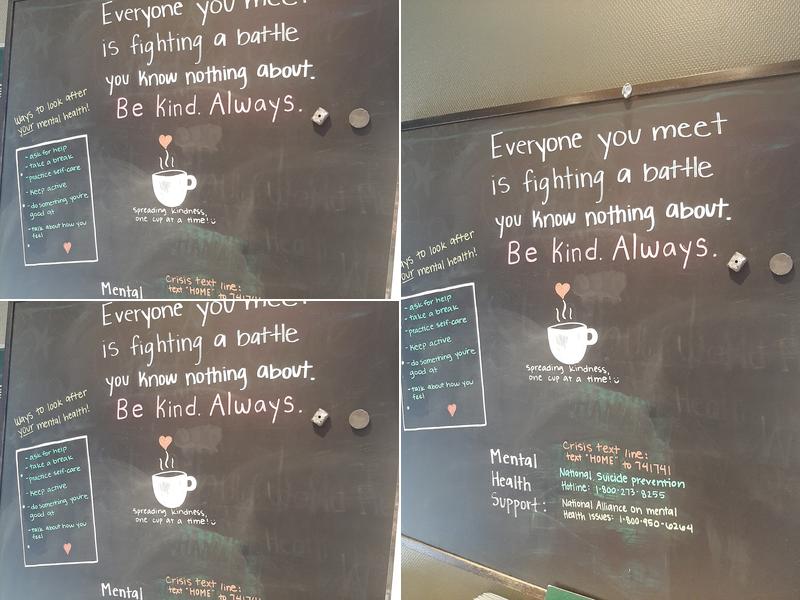 Everyone you meet
is fighting a battle
you know nothing about.
Be kind. Always.
Ways to look after
your mental health!
- ask for help
- take a break
- practice self-care
- keep active
- do something you're
good at
- talk about how you
feel
Spreading kindness,
one cup at a time!
Mental
Crisis text line:
text "HOME" to 741741
Everyone you meet
is fighting a battle
you know nothing about.
Be kind. Always.
Ways to look after
your mental health!
- ask for help
- take a break
- practice self-care
- keep active
- do something you're
good at
- talk about how you
feel
Spreading kindness,
one cup at a time!
Mental
Crisis text line:
text "HOME" to 741741
Everyone you meet
is fighting a battle
you know nothing about.
Be kind. Always.
ays to look after
our mental health!
- ask for help
- take a break
- practice self-care
- keep active
- do something you're
good at
- talk about how you
feel
Spreading kindness,
one cup at a time!
Mental
Health
Support:
Crisis text line:
text "HOME" to 741741
National Suicide prevention
Hotline: 1-800-273-8255
National Alliance on mental
Health issues: 1-800-950-6264